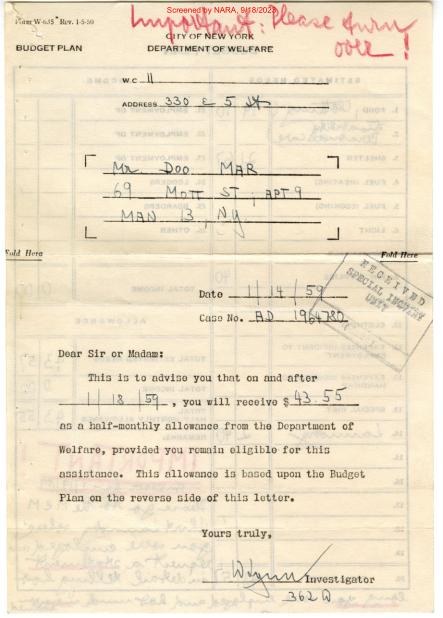 Screened by NARA, 9/18/2023
Form W-635 Rev. 1-5-50
Important: Please turn
over!
CITY OF NEW YORK
BUDGET PLAN
DEPARTMENT OF WELFARE
W.C. 11
ADDRESS 330 E 5 St
Mr. DOO MAR
69 MOTT ST, APT 9
MAN 13, NY
Fold Here
Fold Here
RECEIVED
SPECIAL INQUIRY
UNIT
Date 1/14/59
Case No. AD 1964782
Dear Sir or Madam:
This is to advise you that on and after
1/18/59, you will receive $43.55
as a half-monthly allowance from the Department of
Welfare, provided you remain eligible for this
assistance. This allowance is based upon the Budget
Plan on the reverse side of this letter.
Yours truly,
Investigator
362 D